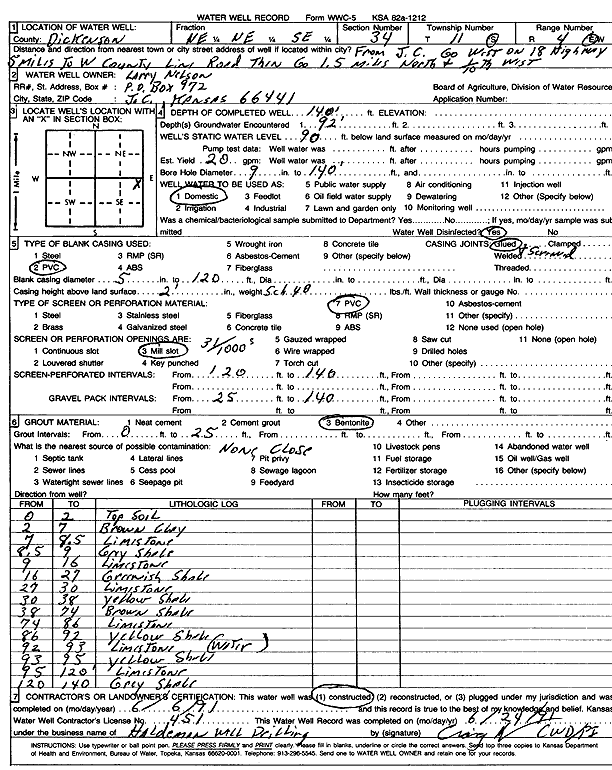 WATER WELL RECORD Form WWC-5 KSA 82a-1212
1 LOCATION OF WATER WELL: Fraction Section Number Township Number Range Number
County: Dickenson NE ¼ NE ¼ SE ¼ 34 T 11 S R 4 E/W
Distance and direction from nearest town or city street address of well if located within city? From J.C. Go West on 18 Highway
5 Milis To W County Lini Road Thin Go 1.5 Milis North & 1/10 th West
2 WATER WELL OWNER: Larry Nelson
RR#, St. Address, Box # : P.O. Box 972 Board of Agriculture, Division of Water Resources
City, State, ZIP Code : J.C. Kansas 66441 Application Number:
3 LOCATE WELL'S LOCATION WITH AN "X" IN SECTION BOX:
N
NW NE
W E
X
SW SE
1 Mile
4 DEPTH OF COMPLETED WELL 140' ft. ELEVATION:
Depth(s) Groundwater Encountered 1. 92' ft. 2. ft. 3. ft.
WELL'S STATIC WATER LEVEL 90 ft. below land surface measured on mo/day/yr
Pump test data: Well water was ft. after hours pumping gpm
Est. Yield 20 gpm: Well water was ft. after hours pumping gpm
Bore Hole Diameter 9 in. to 140 ft., and in. to ft.
WELL WATER TO BE USED AS: 5 Public water supply 8 Air conditioning 11 Injection well
1 Domestic 3 Feedlot 6 Oil field water supply 9 Dewatering 12 Other (Specify below)
2 Irrigation 4 Industrial 7 Lawn and garden only 10 Monitoring well
Was a chemical/bacteriological sample submitted to Department? Yes No ; If yes, mo/day/yr sample was submitted
Water Well Disinfected? Yes No
5 TYPE OF BLANK CASING USED: 5 Wrought iron 8 Concrete tile CASING JOINTS: Glued Clamped
1 Steel 3 RMP (SR) 6 Asbestos-Cement 9 Other (specify below) Welded
2 PVC 4 ABS 7 Fiberglass Threaded.
Blank casing diameter 5 in. to 120 ft., Dia in. to ft., Dia in. to ft.
Casing height above land surface 2' in., weight Sch 40 lbs./ft. Wall thickness or gauge No.
TYPE OF SCREEN OR PERFORATION MATERIAL: 7 PVC 10 Asbestos-cement
1 Steel 3 Stainless steel 5 Fiberglass 8 RMP (SR) 11 Other (specify)
2 Brass 4 Galvanized steel 6 Concrete tile 9 ABS 12 None used (open hole)
SCREEN OR PERFORATION OPENINGS ARE: 5 Gauzed wrapped 8 Saw cut 11 None (open hole)
1 Continuous slot 3 Mill slot 31/1000's 6 Wire wrapped 9 Drilled holes
2 Louvered shutter 4 Key punched 7 Torch cut 10 Other (specify)
SCREEN-PERFORATED INTERVALS: From 120 ft. to 140 ft., From ft. to ft.
From ft. to ft., From ft. to ft.
GRAVEL PACK INTERVALS: From 25 ft. to 140 ft., From ft. to ft.
From ft. to ft., From ft. to ft.
6 GROUT MATERIAL: 1 Neat cement 2 Cement grout 3 Bentonite 4 Other
Grout Intervals: From 0 ft. to 25 ft., From ft. to ft., From ft. to ft.
What is the nearest source of possible contamination: None Close 10 Livestock pens 14 Abandoned water well
1 Septic tank 4 Lateral lines 7 Pit privy 11 Fuel storage 15 Oil well/Gas well
2 Sewer lines 5 Cess pool 8 Sewage lagoon 12 Fertilizer storage 16 Other (specify below)
3 Watertight sewer lines 6 Seepage pit 9 Feedyard 13 Insecticide storage
Direction from well? How many feet?
FROM TO LITHOLOGIC LOG FROM TO PLUGGING INTERVALS
0 2 Top Soil
2 7 Brown Clay
7 8.5 Limistone
8.5 9 Grey Shale
9 16 Limistone
16 27 Greenish Shale
27 30 Limistone
30 38 Yellow Shale
38 74 Brown Shale
74 86 Limistone
86 92 Yellow Shale
92 93 Limistone (Water)
93 95 Yellow Shale
95 120' Limistone
120 140 Grey Shale
7 CONTRACTOR'S OR LANDOWNER'S CERTIFICATION: This water well was (1) constructed, (2) reconstructed, or (3) plugged under my jurisdiction and was
completed on (mo/day/year) 6/6/91 and this record is true to the best of my knowledge and belief. Kansas
Water Well Contractor's License No. 451 This Water Well Record was completed on (mo/day/yr) 6/24/91
under the business name of Haldeman Well Drilling by (signature)
INSTRUCTIONS: Use typewriter or ball point pen. PLEASE PRESS FIRMLY and PRINT clearly. Please fill in blanks, underline or circle the correct answers. Send top three copies to Kansas Department
of Health and Environment, Bureau of Water, Topeka, Kansas 66620-0001. Telephone: 913-296-5545. Send one to WATER WELL OWNER and retain one for your records.